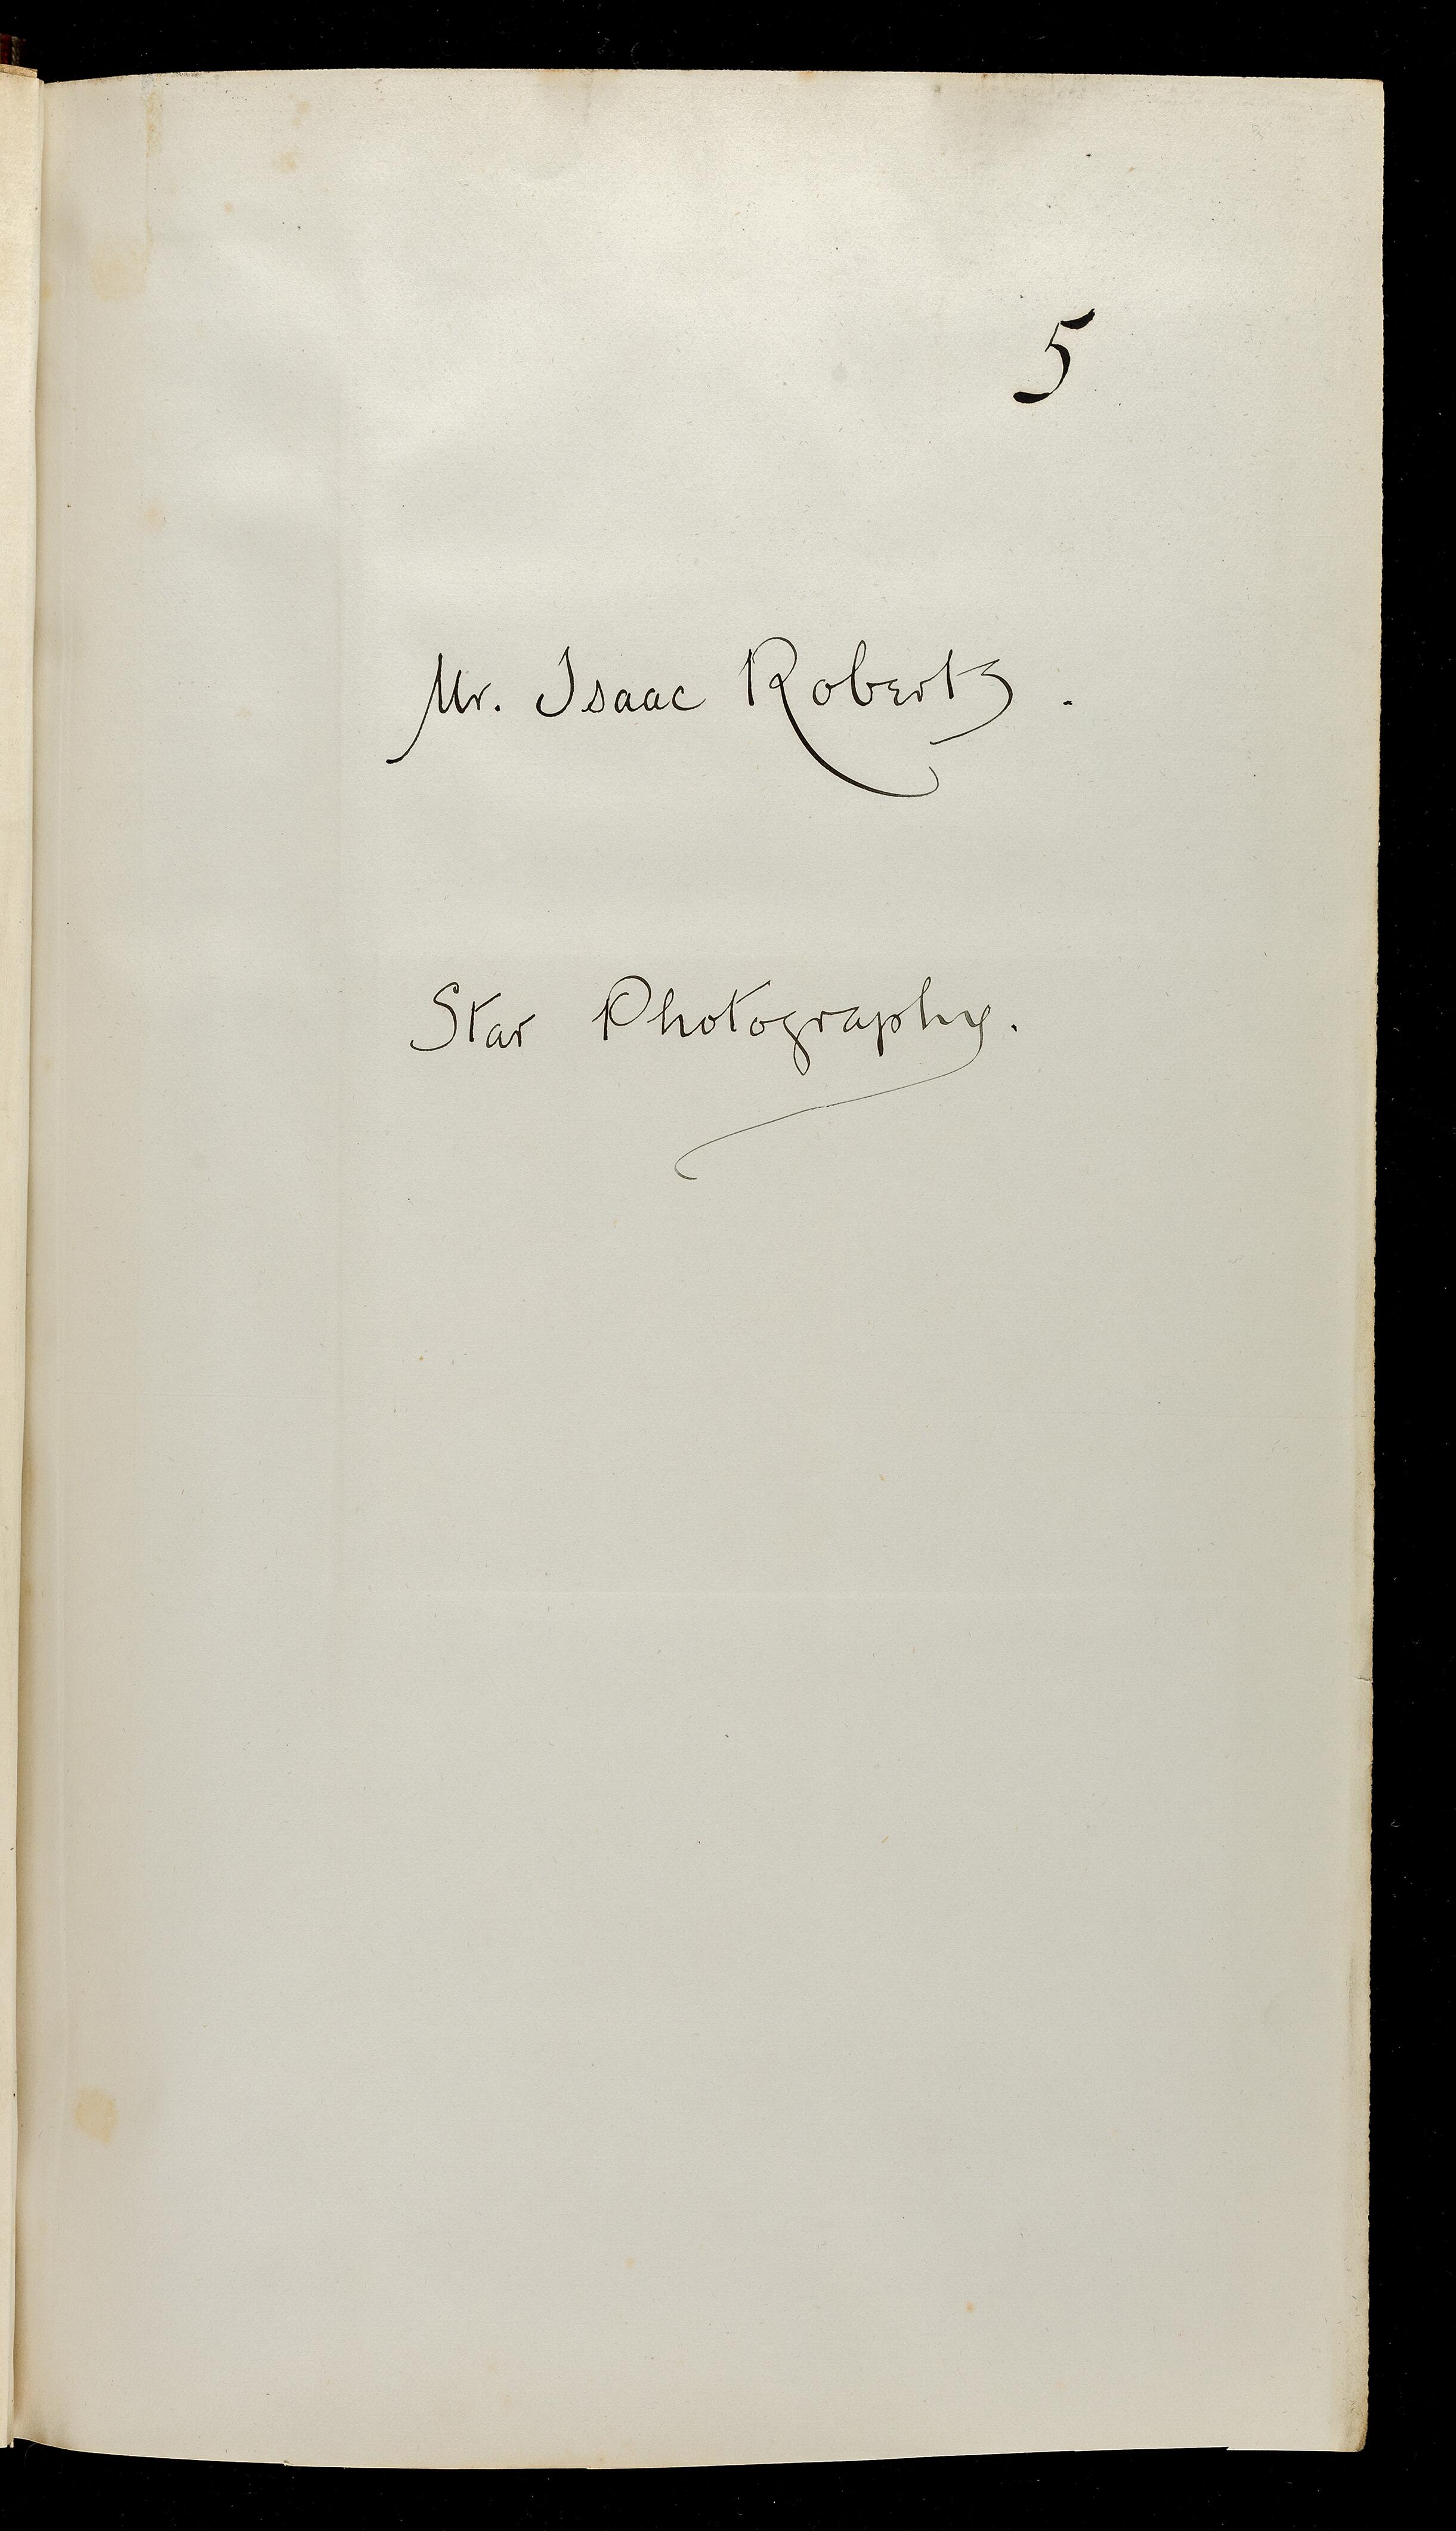 5
Mr. Isaac Roberts.
Star Photography.